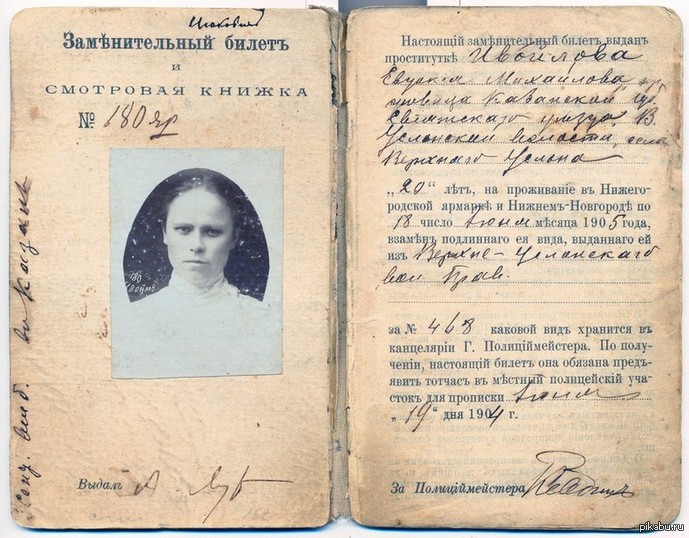 Замѣнительный билетъ
и
СМОТРОВАЯ КНИЖКА
№ 180 яр
180
Выдалъ
Настоящій замѣнительный билетъ выданъ
проституткѣ Ивойлова
Евдокія Михайлова
Казанской губ.
уѣзда, В.
Услонской волости, села
Верхняго Услона
„20“ лѣтъ, на проживаніе въ Нижего-
родской ярмаркѣ и Нижнемъ-Новгородѣ по
18 число іюня мѣсяца 1905 года,
взамѣнъ подлиннаго ея вида, выданнаго ей
изъ Верхне-Услонскаго
вол. Прав.
за № 468 каковой видъ хранится въ
канцеляріи Г. Полиційместера. По полу-
ченіи, настоящій билетъ она обязана предъ-
явить тотчасъ въ мѣстный полицейскій уча-
стокъ для прописки іюня
„19“ дня 1904 г.
За Полиційместера
pikabu.ru